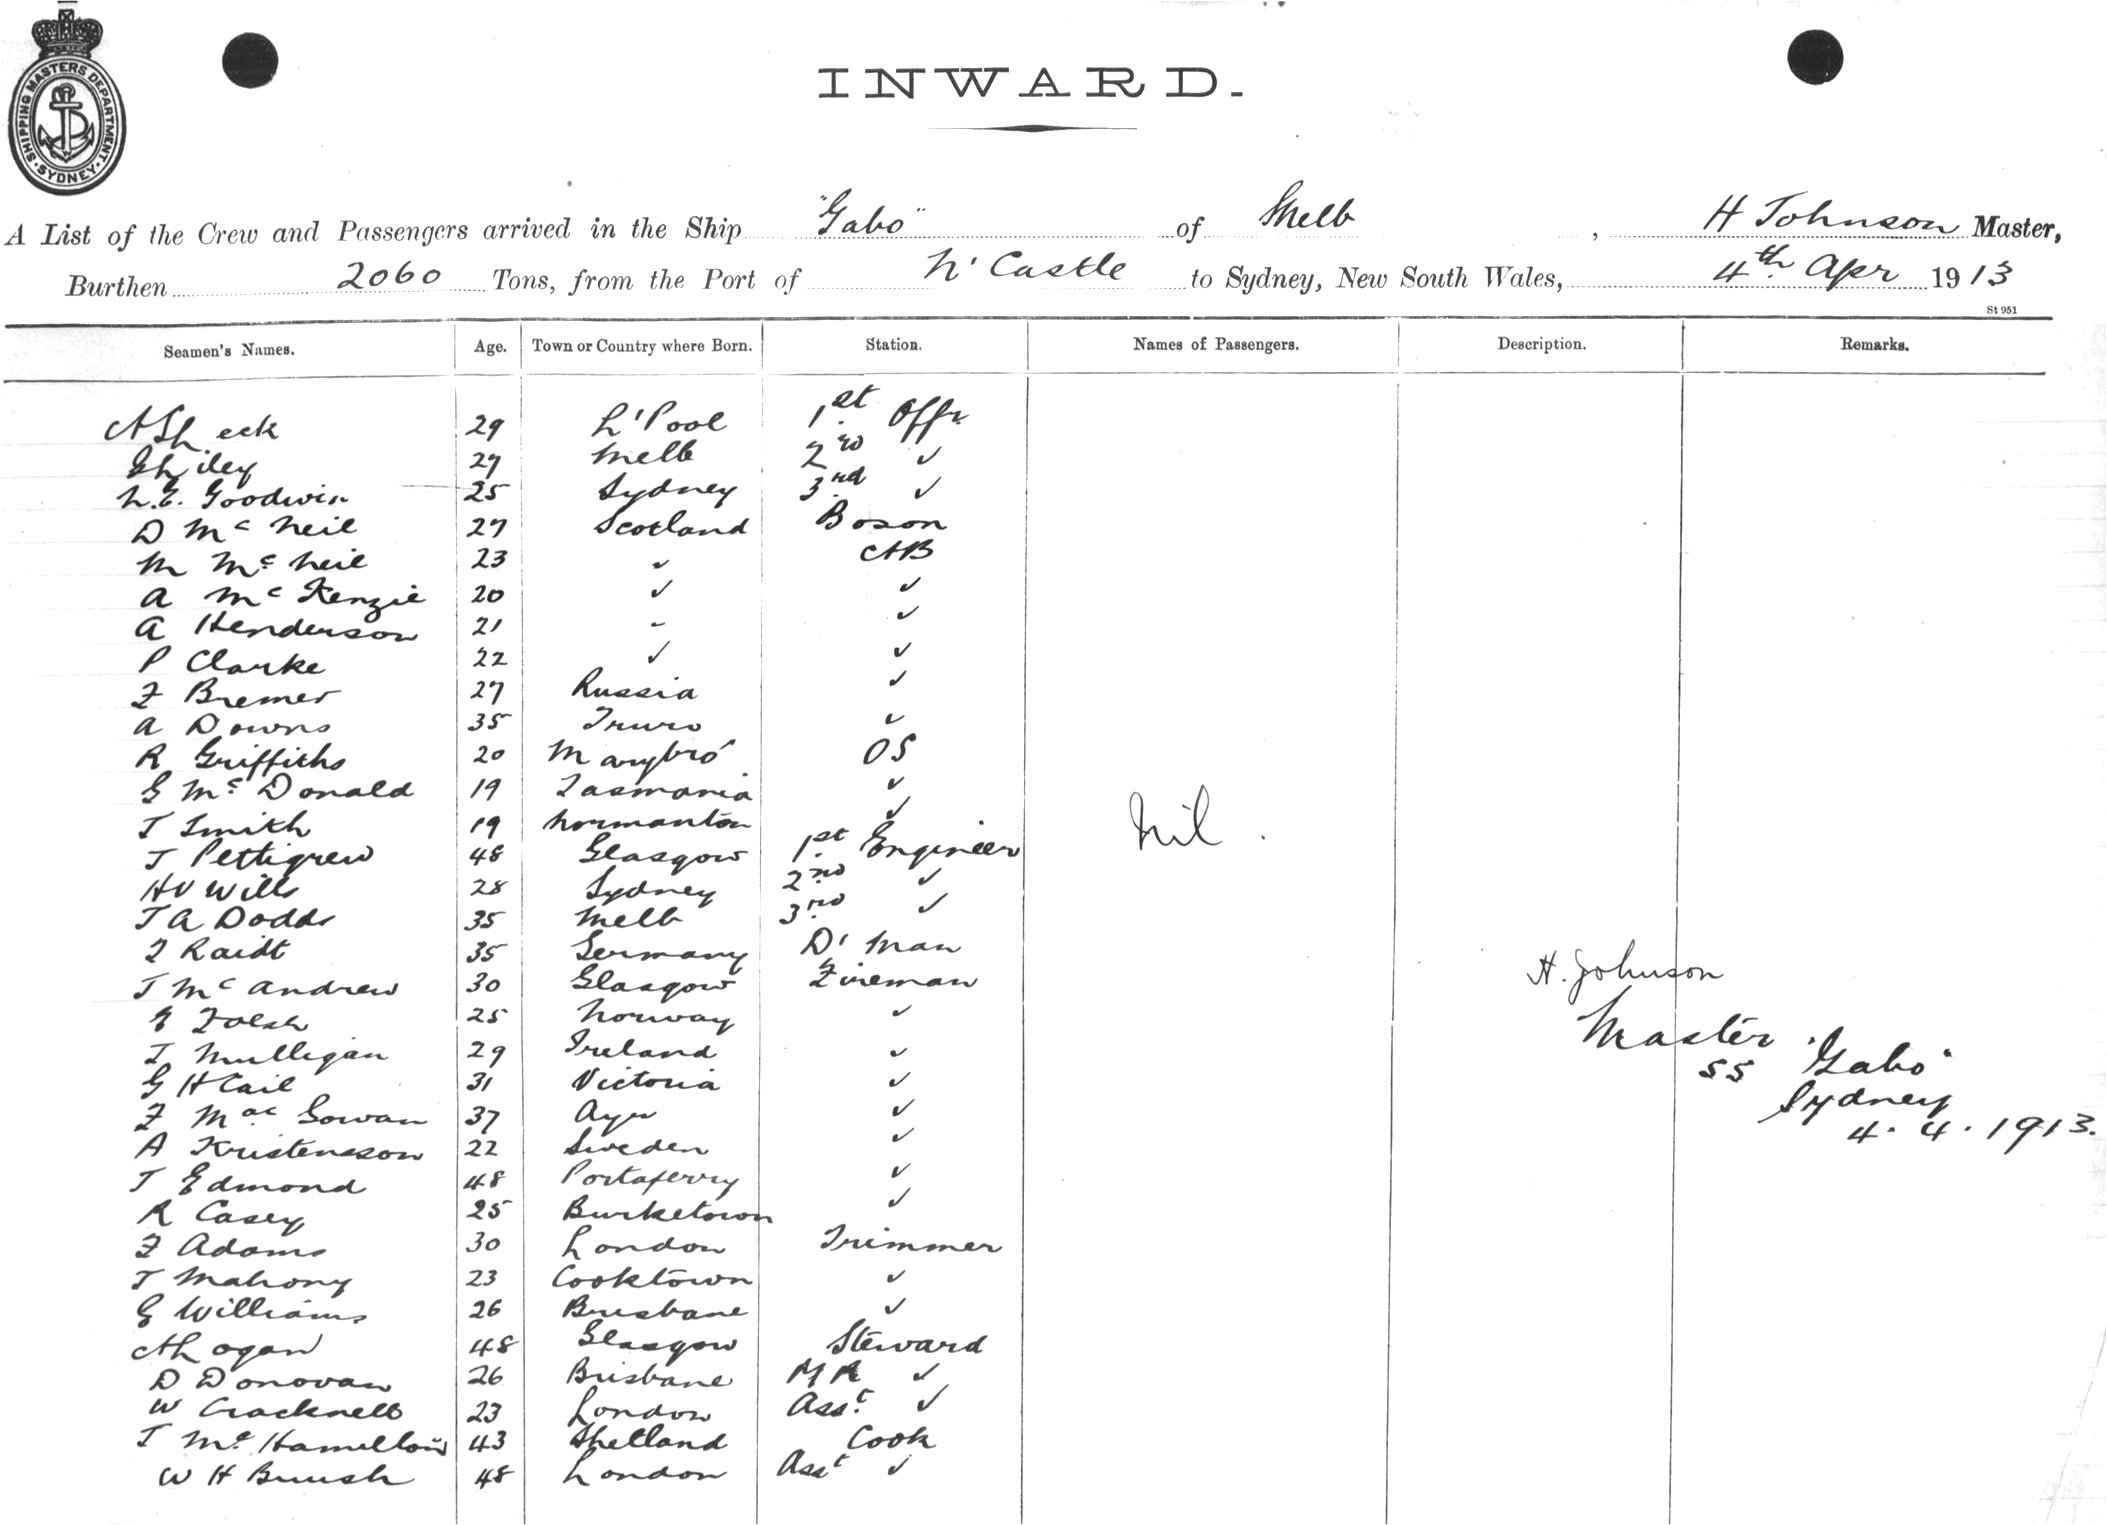 SHIPPING MASTERS DEPARTMENT · SYDNEY ·
INWARD.
A List of the Crew and Passengers arrived in the Ship "Gabo" of Melb, H Johnson Master,
Burthen 2060 Tons, from the Port of N'Castle to Sydney, New South Wales, 4th Apr 1913
St 951
Seamen's Names. Age. Town or Country where Born. Station. Names of Passengers. Description. Remarks.
29 L'Pool 1st Offr
27 Melb 2nd ✓
L.E. Goodwin 25 Sydney 3rd ✓
D McNeil 27 Scotland Boson
M McNeil 23 ✓ AB
A McKenzie 20 ✓ ✓
A Henderson 21 - ✓
P Clarke 22 ✓ ✓
F Bremer 27 Russia ✓
A Downs 35 Truro ✓
R Griffiths 20 Marybro' OS
G McDonald 19 Tasmania ✓
T Smith 19 Normanton ✓
Nil.
J Pettigrew 48 Glasgow 1st Engineer
HV Wills 28 Sydney 2nd ✓
J A Dodds 35 Melb 3rd ✓
F Raidt 35 Germany D'Man
J McAndrew 30 Glasgow Fireman
25 Norway ✓
T Mulligan 29 Ireland ✓
G H Cail 31 Victoria ✓
F MacGowan 37 Ayr ✓
A Kristensson 22 Sweden ✓
J Edmond 48 Portaferry ✓
R Casey 25 Burketown ✓
F Adams 30 London Trimmer
T Mahony 23 Cooktown ✓
G Williams 26 Brisbane ✓
A Logan 48 Glasgow Steward
D Donovan 26 Brisbane MR ✓
W Cracknell 23 London Asst ✓
J McHamilton 43 Shetland Cook
W H 48 London Asst ✓
H. Johnson
Master
SS "Gabo"
Sydney
4.4.1913.